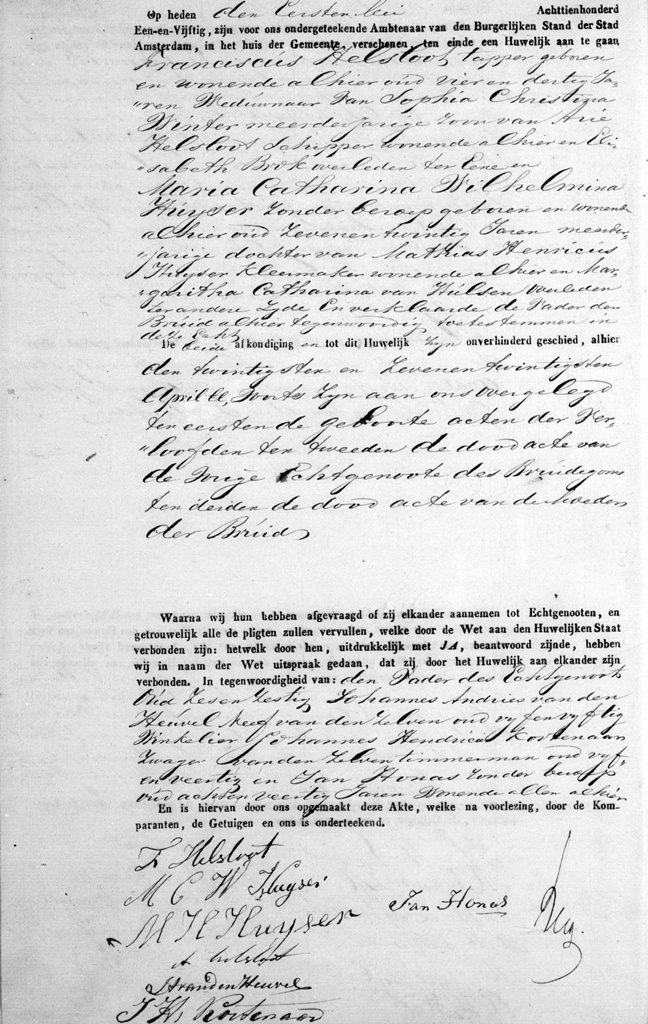 Op heden den Eersten Mei Achttienhonderd
Een-en-Vijftig, zijn voor ons ondergeteekende Ambtenaar van den Burgerlijken Stand der Stad
Amsterdam, in het huis der Gemeente, verschenen, ten einde een Huwelijk aan te gaan,
Franciscus Helsloot tapper geboren
en wonende alhier oud vier en dertig Ja-
"ren Weduwnaar van Sophia Christina
Winter meerderjarige Zoon van Arie
Helsloot Schipper wonende alhier en Eli-
"sabeth Brok overleden ter Eene en
Maria Catharina Wilhelmina
Huyser Zonder beroep geboren en wonende
alhier oud Zeven en twintig Jaren meerder-
"jarige dochter van Mathias Henricus
Huyser Kleermaker wonende alhier en Mar-
"garitha Catharina van Hulsen overleden
ter andere Zyde En verklaarde de Vader der
Bruid alhier tegenwoordig toetestemmen in
deze Echt
De beide afkondiging en tot dit Huwelijk Zyn onverhinderd geschied, alhier
den twintigsten en Zevenen twintigsten
April ll. Voorts Zyn aan ons overgelegd
ten eersten de geboorte acten der Ver-
"loofden ten tweeden de dood acte van
de Vorige Echtgenoote des Bruidegoms
ten derden de dood acte van de Moeder
der Bruid
Waarna wij hun hebben afgevraagd of zij elkander aannemen tot Echtgenooten, en
getrouwelijk alle de pligten zullen vervullen, welke door de Wet aan den Huwelijken Staat
verbonden zijn: hetwelk door hen, uitdrukkelijk met JA, beantwoord zijnde, hebben
wij in naam der Wet uitspraak gedaan, dat zij door het Huwelijk aan elkander zijn
verbonden. In tegenwoordigheid van: den Vader des Echtgenoots
Oud Zes en Zestig Johannes Andries van den
Heuvel Neef van den Zelven oud vyf en vyftig
Winkelier Johannes Hendricus Kortenaar
Zwager van den Zelven timmerman oud vyf-
en veertig en Jan Honas Zonder beroep
oud acht en veertig Jaren Wonende allen alhier
En is hiervan door ons opgemaakt deze Akte, welke na voorlezing, door de Kom-
paranten, de Getuigen en ons is onderteekend.
F Helsloot
M C W Huyser
M H Huyser
Jan Honas
A Helsloot
J A van den Heuvel
J H Kortenaar